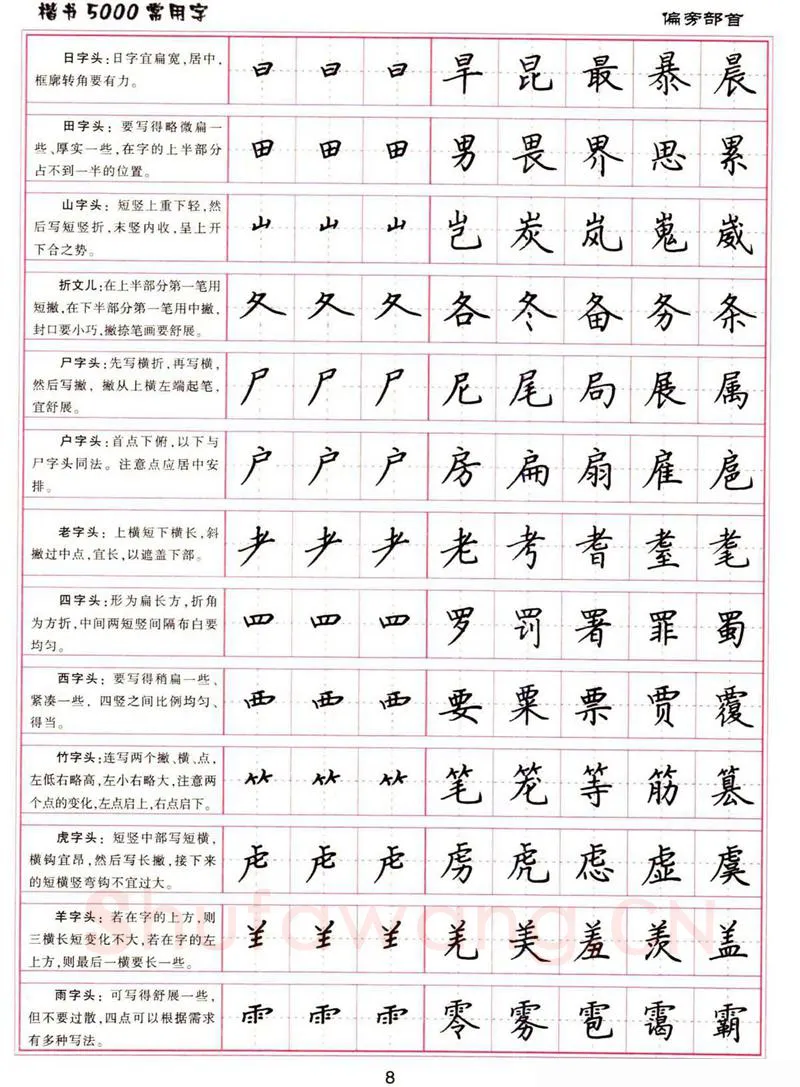 楷书5000常用字
偏旁部首
日字头：日字宜扁宽，居中，
框廓转角要有力。
日 日 日 旱 昆 最 暴 晨
田字头：要写得略微扁一
些、厚实一些，在字的上半部分
占不到一半的位置。
田 田 田 男 畏 界 思 累
山字头：短竖上重下轻，然
后写短竖折，末竖内收，呈上开
下合之势。
山 山 山 岂 炭 岚 嵬 崴
折文儿：在上半部分第一笔用
短撇，在下半部分第一笔用中撇，
封口要小巧，撇捺笔画要舒展。
夂 夂 夂 各 冬 备 务 条
尸字头：先写横折，再写横，
然后写撇，撇从上横左端起笔，
宜舒展。
尸 尸 尸 尼 尾 局 展 属
户字头：首点下俯，以下与
尸字头同法。注意点应居中安
排。
户 户 户 房 扁 扇 雇 扈
老字头：上横短下横长，斜
撇过中点，宜长，以遮盖下部。
耂 耂 耂 老 考 耆 耋 耄
四字头：形为扁长方，折角
为方折，中间两短竖间隔布白要
均匀。
四 四 四 罗 罚 署 罪 蜀
西字头：要写得稍扁一些、
紧凑一些，四竖之间比例均匀、
得当。
覀 覀 覀 要 粟 票 贾 覆
竹字头：连写两个撇、横、点，
左低右略高，左小右略大，注意两
个点的变化，左点启上，右点启下。
⺮ ⺮ ⺮ 笔 笼 等 筋 篡
虎字头：短竖中部写短横，
横钩宜昂，然后写长撇，接下来
的短横竖弯钩不宜过大。
虍 虍 虍 虏 虎 虑 虚 虞
羊字头：若在字的上方，则
三横长短变化不大，若在字的左
上方，则最后一横要长一些。
⺷ ⺷ ⺷ 羌 美 羞 羡 盖
雨字头：可写得舒展一些，
但不要过散，四点可以根据需求
有多种写法。
⻗ ⻗ ⻗ 零 雾 雹 霭 霸
Shufawang.CN
8